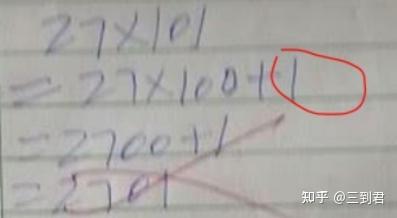 27×101
=27×100+1
=2700+1
=2701
知乎 @三到君